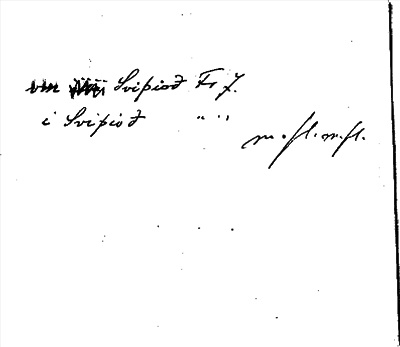 um Sviþiod Fr J.
i Sviþiod " "
m. fl. m. fl.